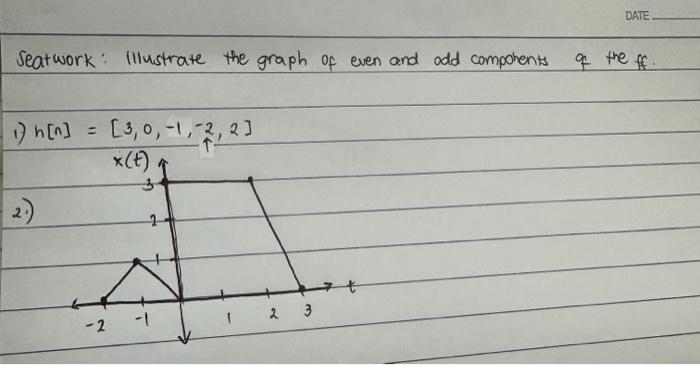 DATE
Seatwork: illustrate the graph of even and odd components of the ff.
1) h[n] = [3, 0, -1, -2, 2]
↑
x(t)
3
2.)
2
1
t
-2 -1 1 2 3